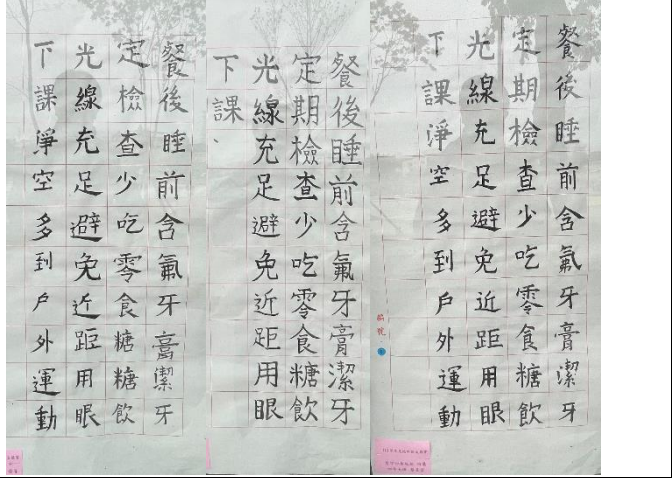 餐後睡前含氟牙膏潔牙
定檢查少吃零食糖糖飲
光線充足避免近距用眼
下課淨空多到戶外運動
餐後睡前含氟牙膏潔牙
定期檢查少吃零食糖飲
光線充足避免近距用眼
下課、
餐後睡前含氟牙膏潔牙
定期檢查少吃零食糖飲
光線充足避免近距用眼
下課淨空多到戶外運動
編號